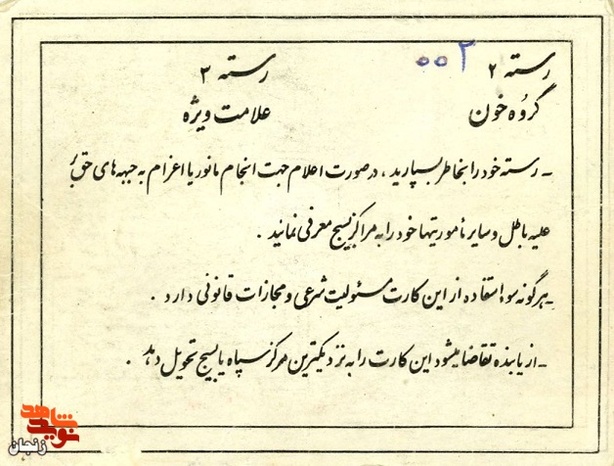 رسته ۲ ۰۰۲ رسته ۳
گروه خون علامت ویژه
- رسته خود را بخاطر بسپارید ، در صورت اعلام جهت انجام مانور یا اعزام به جبهه های حق بر
علیه باطل و سایر مأموریتها خود را به مراکز بسیج معرفی نمائید .
- هرگونه سوء استفاده از این کارت مسئولیت شرعی و مجازات قانونی دارد .
- از یابنده تقاضا میشود این کارت را به نزدیکترین مرکز سپاه یا بسیج تحویل دهد .
نوید شاهد
زنجان